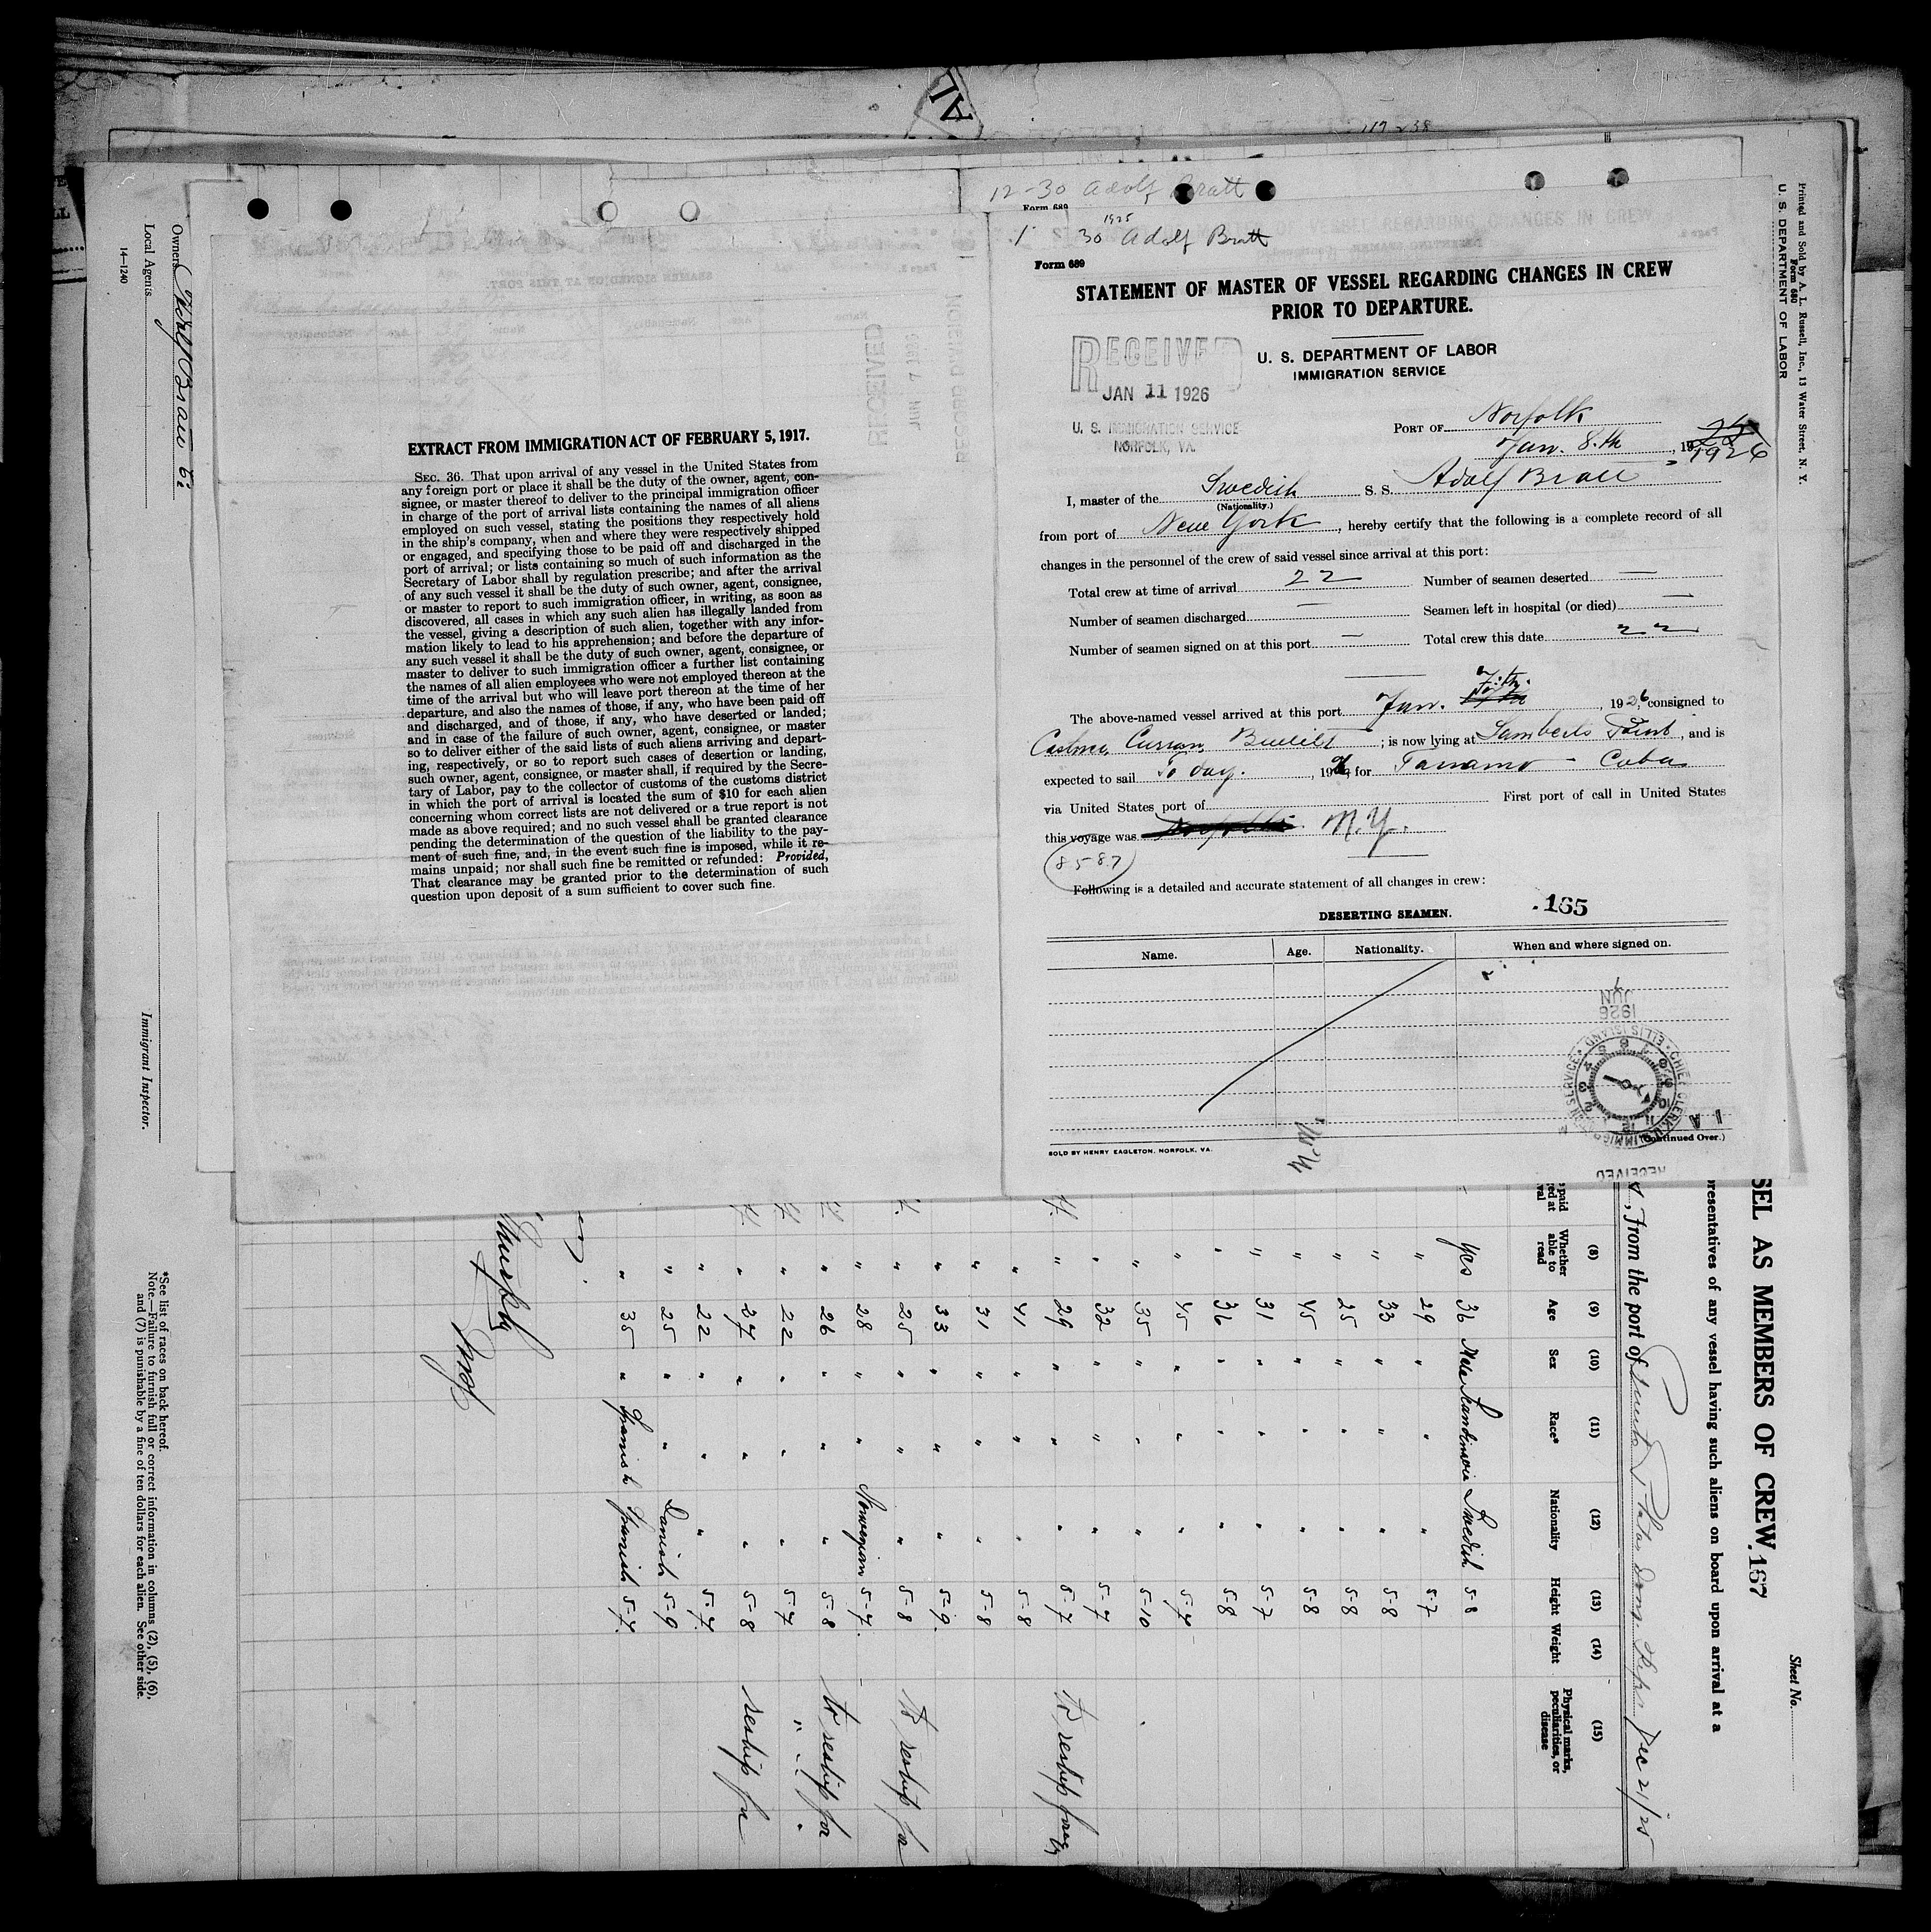 AL
12-30 Adolf Bratt
Form 689
1925
1 30 Adolf Bratt
Form 689
STATEMENT OF MASTER OF VESSEL REGARDING CHANGES IN CREW
PRIOR TO DEPARTURE.
U. S. DEPARTMENT OF LABOR
IMMIGRATION SERVICE
RECEIVED
JAN 11 1926
U. S. IMMIGRATION SERVICE
NORFOLK, VA.
PORT OF Norfolk
Jan. 8.th, 19 1926
I, master of the Swedish S. S. Adolf Bratt
(Nationality.)
from port of New York, hereby certify that the following is a complete record of all
changes in the personnel of the crew of said vessel since arrival at this port:
Total crew at time of arrival 22 Number of seamen deserted —
Number of seamen discharged — Seamen left in hospital (or died) —
Number of seamen signed on at this port — Total crew this date 22
The above-named vessel arrived at this port Jan. 1926, consigned to
Castner Curran Bullitt; is now lying at Lamberts Point, and is
expected to sail To day., 1926, for Tanamo - Cuba
via United States port of First port of call in United States
this voyage was N.Y.
8587
Following is a detailed and accurate statement of all changes in crew:
.165
DESERTING SEAMEN.
Name. Age. Nationality. When and where signed on.
JUN 7 1926
ELLIS ISLAND
CHIEF CLERK
U.S. IMMIGRATION SERVICE
RECEIVED
(Continued Over.)
SOLD BY HENRY EAGLETON, NORFOLK, VA.
N.Y.
EXTRACT FROM IMMIGRATION ACT OF FEBRUARY 5, 1917.
SEC. 36. That upon arrival of any vessel in the United States from
any foreign port or place it shall be the duty of the owner, agent, con-
signee, or master thereof to deliver to the principal immigration officer
in charge of the port of arrival lists containing the names of all aliens
employed on such vessel, stating the positions they respectively hold
in the ship's company, when and where they were respectively shipped
or engaged, and specifying those to be paid off and discharged in the
port of arrival; or lists containing so much of such information as the
Secretary of Labor shall by regulation prescribe; and after the arrival
of any such vessel it shall be the duty of such owner, agent, consignee,
or master to report to such immigration officer, in writing, as soon as
discovered, all cases in which any such alien has illegally landed from
the vessel, giving a description of such alien, together with any infor-
mation likely to lead to his apprehension; and before the departure of
any such vessel it shall be the duty of such owner, agent, consignee, or
master to deliver to such immigration officer a further list containing
the names of all alien employees who were not employed thereon at the
time of the arrival but who will leave port thereon at the time of her
departure, and also the names of those, if any, who have been paid off
and discharged, and of those, if any, who have deserted or landed;
and in case of the failure of such owner, agent, consignee, or master
so to deliver either of the said lists of such aliens arriving and depart-
ing, respectively, or so to report such cases of desertion or landing,
such owner, agent, consignee, or master shall, if required by the Secre-
tary of Labor, pay to the collector of customs of the customs district
in which the port of arrival is located the sum of $10 for each alien
concerning whom correct lists are not delivered or a true report is not
made as above required; and no such vessel shall be granted clearance
pending the determination of the question of the liability to the pay-
ment of such fine, and, in the event such fine is imposed, while it re-
mains unpaid; nor shall such fine be remitted or refunded: Provided,
That clearance may be granted prior to the determination of such
question upon deposit of a sum sufficient to cover such fine.
Printed and Sold by A. L. Russell, Inc., 13 Water Street, N. Y.
Form 680
U. S. DEPARTMENT OF LABOR
Sheet No.
SEL AS MEMBERS OF CREW 167
presentatives of any vessel having such aliens on board upon arrival at a
, from the port of Puerto Plata Dom. Rep. Dec 21/25
(8) (9) (10) (11) (12) (13) (14) (15)
Whether able to read Age Sex Race* Nationality Height Weight Physical marks, peculiarities, or disease
Yes 36 Male Scandinavia Swedish 5-8
" 29 " " " 5-7
" 33 " " " 5-8
" 25 " " " 5-8
" 45 " " " 5-8
" 31 " " " 5-7
" 36 " " " 5-8
" 45 " " " 5-7
" 35 " " " 5-10
" 32 " " " 5-7
" 29 " " " 5-7 to reship foreign
" 41 " " " 5-8
" 31 " " " 5-8
" 33 " " " 5-9
" 25 " " " 5-8 to reship for
" 28 " " Norwegian 5-7
" 26 " " " 5-8 to reship for
" 22 " " " 5-7 " "
" 27 " " " 5-8 reship for
" 22 " " " 5-7
" 25 " " Danish 5-9
" 35 " Spanish Spanish 5-7
*See list of races on back hereof.
Note.—Failure to furnish full or correct information in columns (2), (5), (6),
and (7) is punishable by a fine of ten dollars for each alien. See other side.
Immigrant Inspector.
Owners Adolf Bratt Co
Local Agents
14—1240